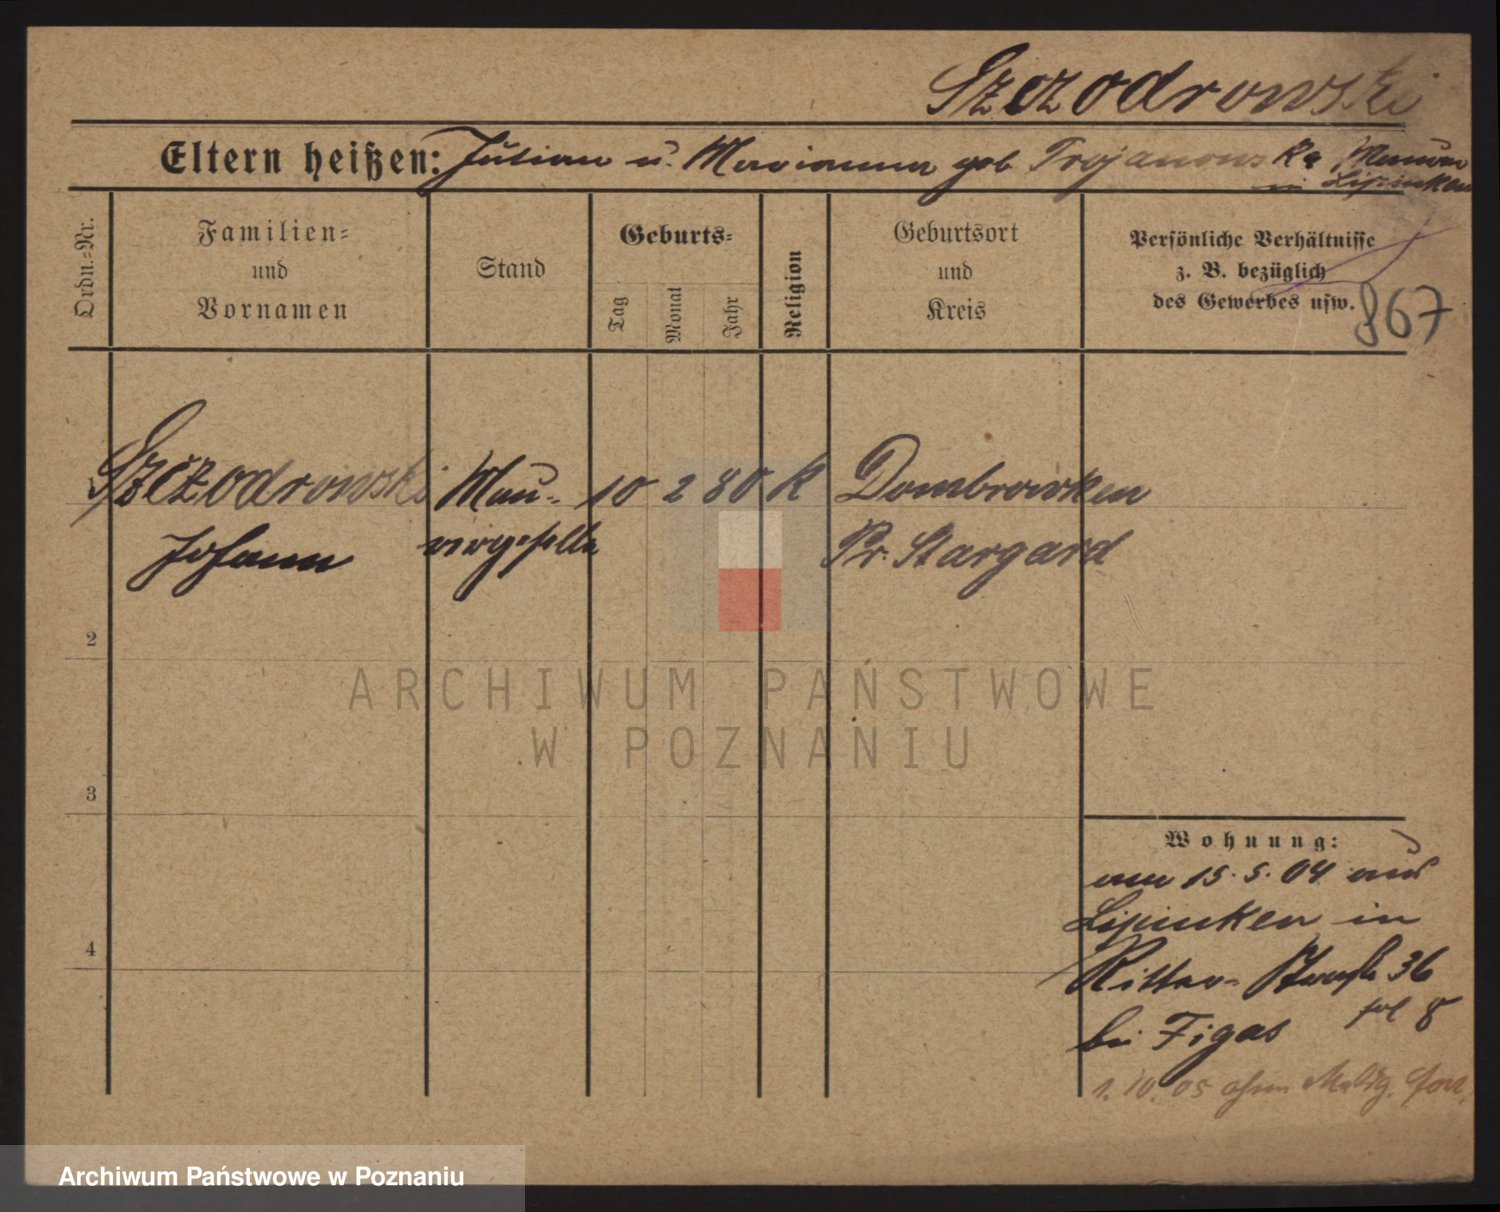 Szczodrowski
Eltern heißen: Julian u. Marianna geb Trojanowska Maurer
in Lipinken
Ordn.-Nr.
Familien-
und
Vornamen
Stand
Geburts-
Tag
Monat
Jahr
Religion
Geburtsort
und
Kreis
Persönliche Verhältnisse
z. B. bezüglich
des Gewerbes usw.
867
Szczodrowski Mau- 10 2 80 K Dombrowken
Johann rergeselle Pr. Stargard
2
3
4
ARCHIWUM PAŃSTWOWE
W POZNANIU
Wohnung:
am 15. 5. 04 aus
Lipinken in
Ritter-Straße 36
bei Figas fol 8
1. 10. 05 ohne Meldg. fort.
Archiwum Państwowe w Poznaniu